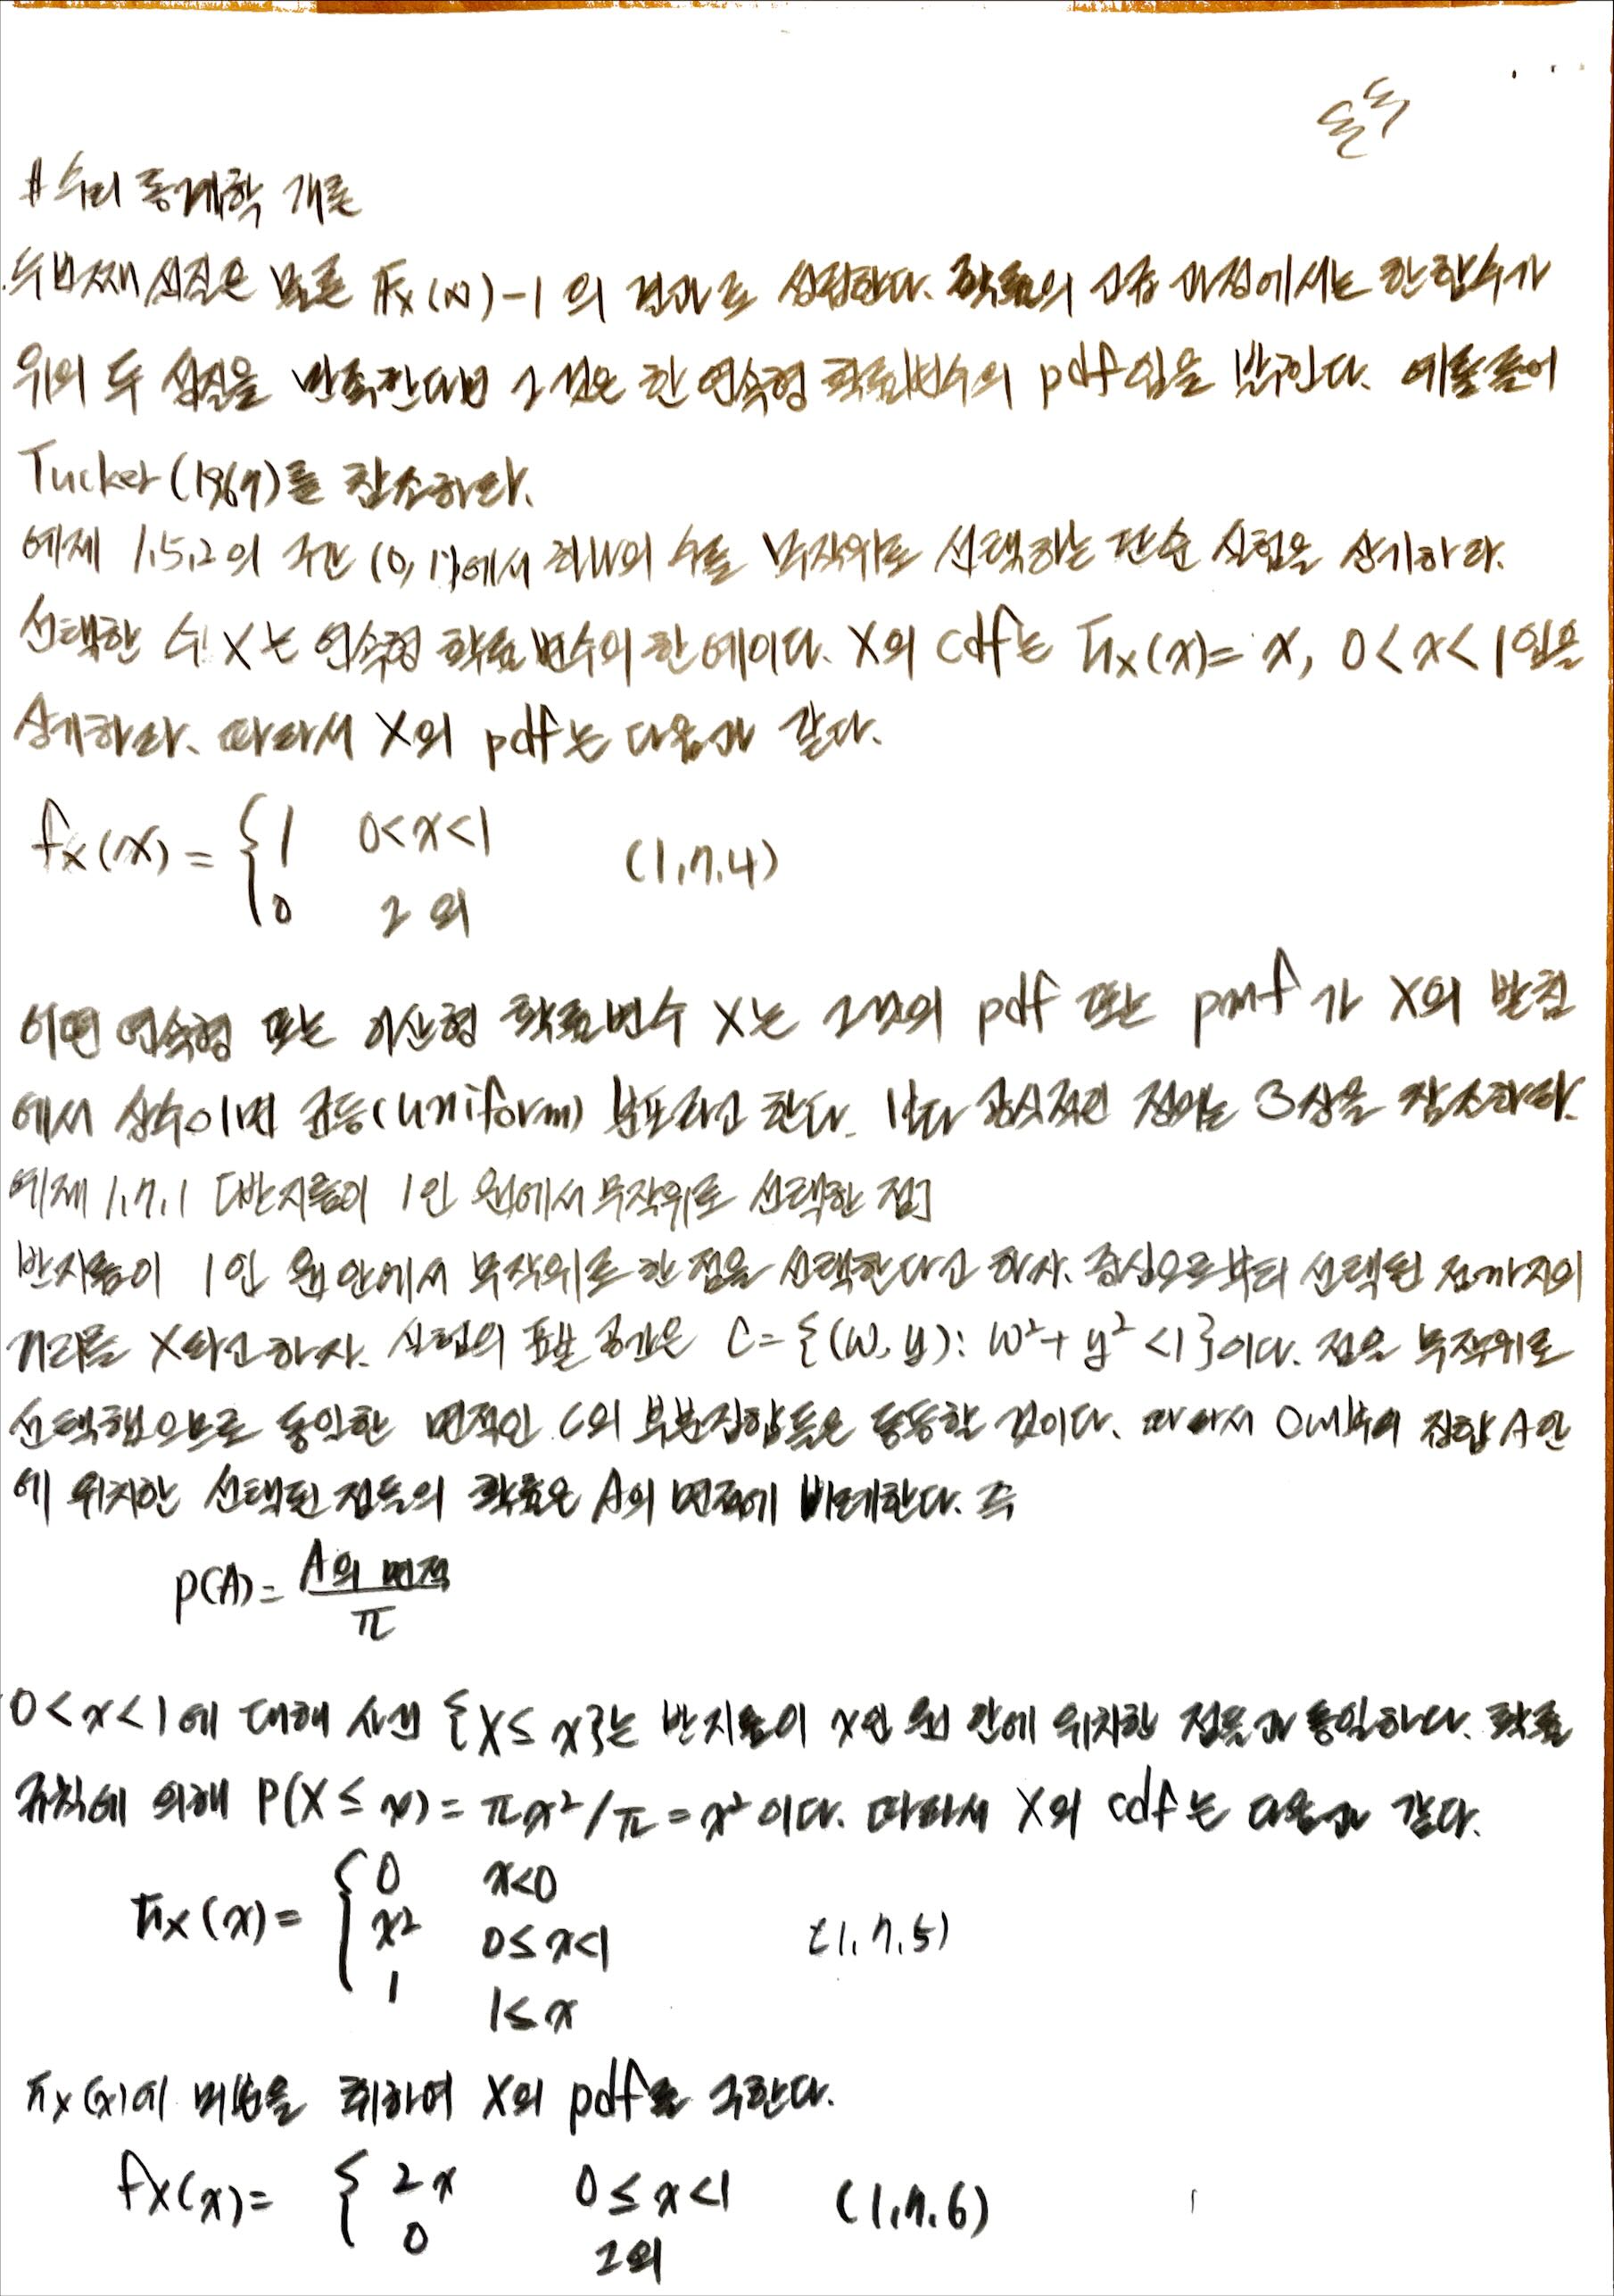 # 수리 통계학 개론
두번째 성질은 물론 Fx(∞)-1 의 결과로 성립한다. 확률의 고급 과정에서는 한 함수가
위의 두 성질을 만족한다면 그것은 한 연속형 확률변수의 pdf임을 반환다. 예를들어
Tucker(1967)를 참조하라.
예제 1.5.2의 구간 (0, 1)에서 하나의 수를 무작위로 선택하는 단순 실험을 상기하라.
선택한 수 X는 연속형 확률 변수의 한 예이다. X의 cdf는 Fx(x)= x, 0<x<1임을
상기하라. 따라서 X의 pdf는 다음과 같다.
fx(x) = { 1 0<x<1 (1.7.4)
0 그 외
어떤 연속형 또는 이산형 확률변수 X는 그것의 pdf 또는 pmf 가 X의 받침
에서 상수이면 균등(uniform) 분포라고 한다. 보다 공식적인 정의는 3장을 참조하라.
예제 1.7.1 [반지름이 1인 원에서 무작위로 선택한 점]
반지름이 1인 원 안에서 무작위로 한 점을 선택한다고 하자. 중심으로부터 선택된 점까지의
거리를 X라고 하자. 실험의 표본 공간은 C = {(w, y): w²+ y² <1}이다. 점을 무작위로
선택했으므로 동일한 면적인 C의 부분집합들은 동등할 것이다. 따라서 C내부의 집합 A 안
에 위치한 선택된 점들의 확률은 A의 면적에 비례한다. 즉
P(A)= A의 면적
π
0<x<1에 대해 사건 {X≤ x}는 반지름이 x인 원 안에 위치한 점들과 동일하다. 확률
규칙에 의해 P(X ≤ x) = πx²/π = x² 이다. 따라서 X의 cdf는 다음과 같다.
Fx(x) = { 0 x<0
x² 0≤x<1 (1.7.5)
1 1≤x
Fx(x)에 미분을 취하여 X의 pdf를 구한다.
fx(x)= { 2x 0≤x<1 (1.7.6)
0 그외